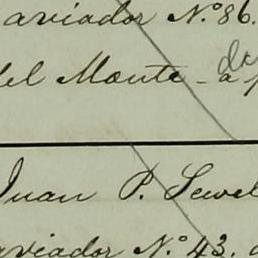 aviador Nº 86.
del Monte - a
Juan P. Sewel
aviador Nº 43.